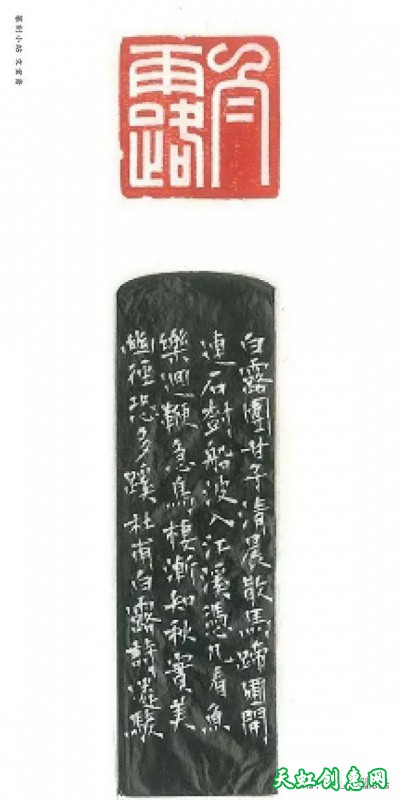 篆刻小站
露
白露團甘子清晨散馬蹄圃開
連石樹船波入江溪憑几看魚
樂迴鞭急鳥棲漸知秋實美
幽徑恐多蹊 杜甫白露詩
天虹创意网